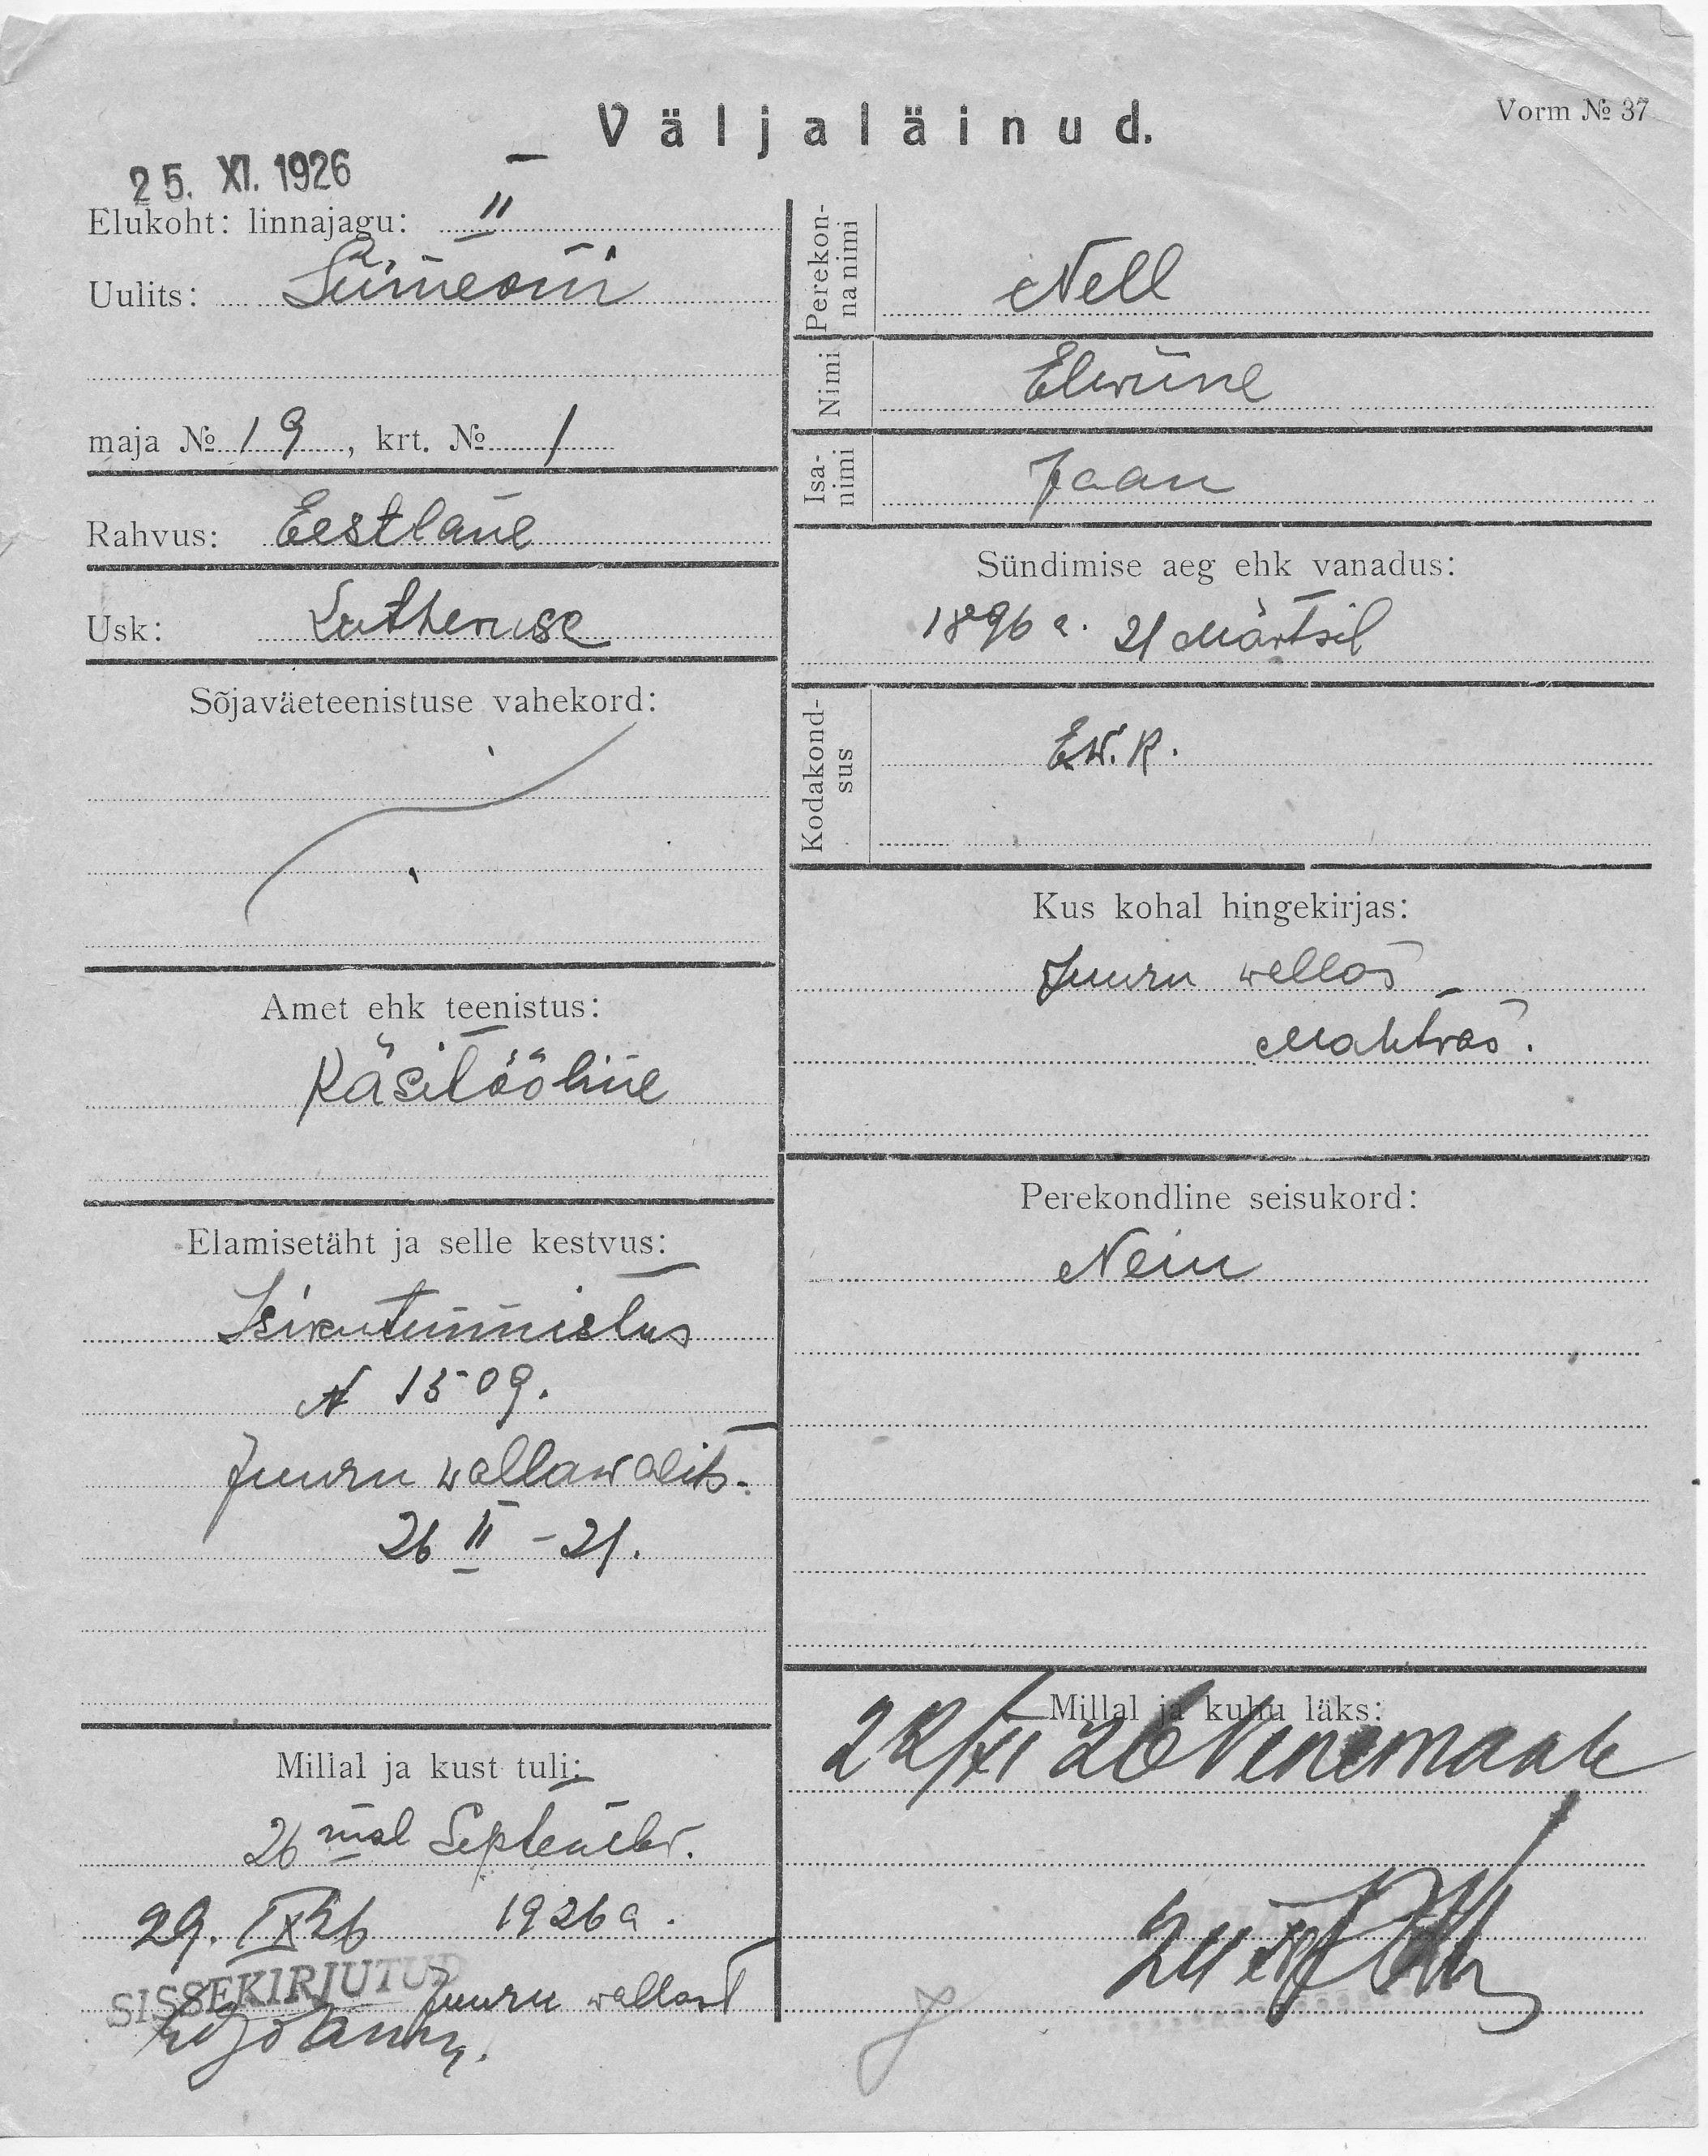 Väljaläinud.
Vorm № 37
25. XI. 1926
Elukoht: linnajagu: II
Uulits: Siimeoni
maja № 19, krt. № 1
Rahvus: Eestlane
Usk: Lutheruse
Sõjaväeteenistuse vahekord:
Amet ehk teenistus:
Käsitööline
Elamisetäht ja selle kestvus:
Isikutunnistus
N 1509.
Juuru wallawalits.
26 II - 21.
Millal ja kust tuli:
26 mal Septembr.
29. IX 26 1926 a.
SISSEKIRJUTUD
Juuru wallast
Perekonnanimi
Nell
Nimi
Elwine
Isanimi
Jaan
Sündimise aeg ehk vanadus:
1896 a. 21 Märtsil
Kodakondsus
E.W.K.
Kus kohal hingekirjas:
Juuru wallas
Mahtras.
Perekondline seisukord:
Neiu
Millal ja kuhu läks:
22/XI 26 Venemaale